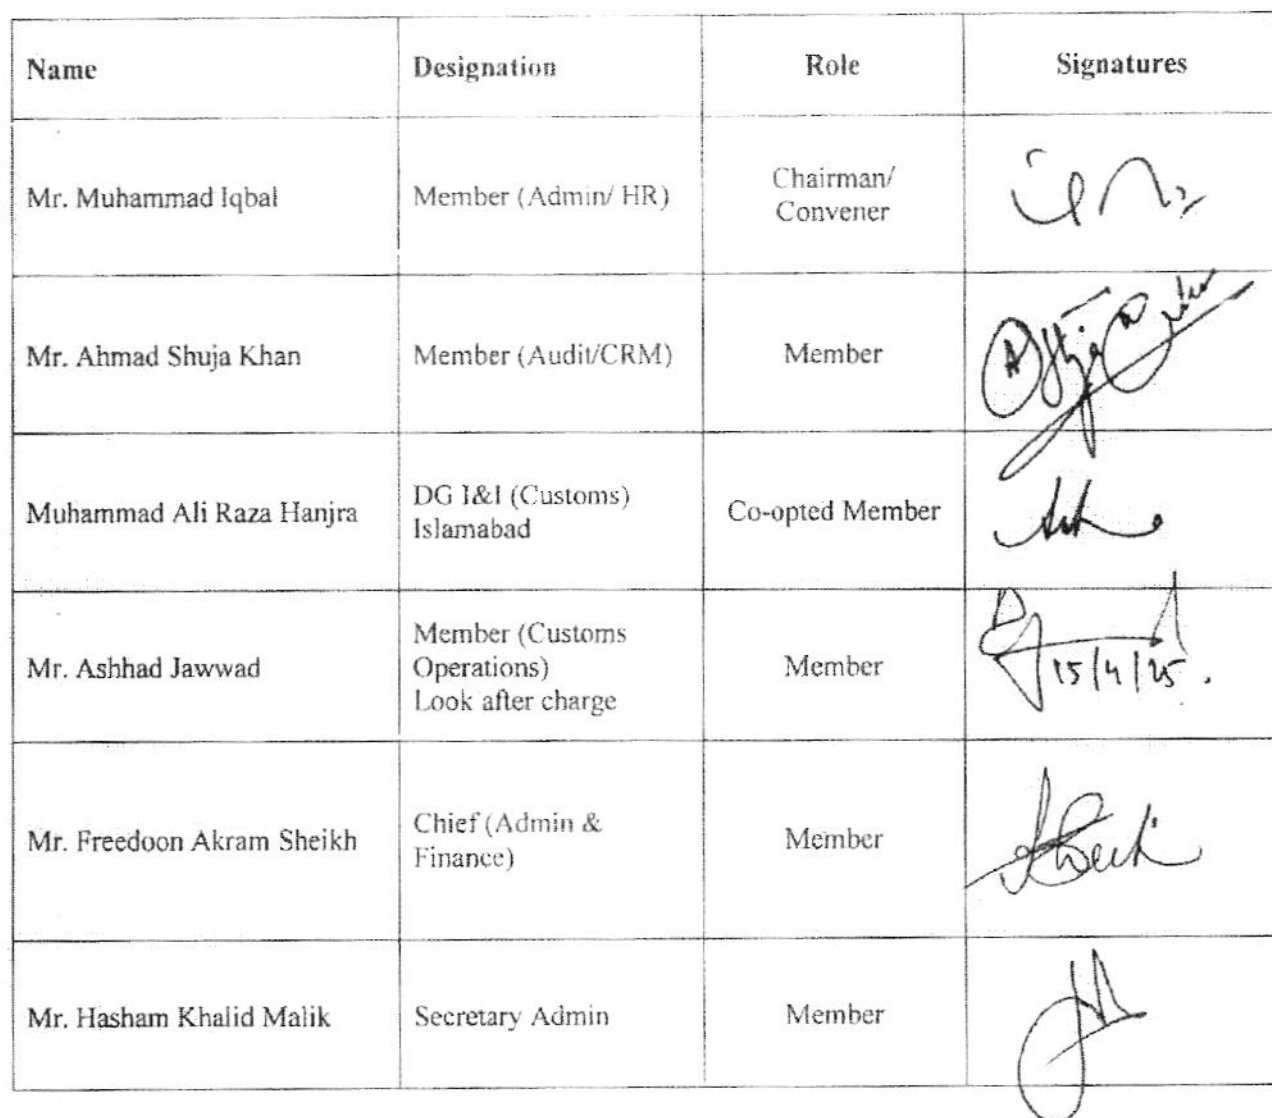 Name Designation Role Signatures
Mr. Muhammad Iqbal Member (Admin/ HR) Chairman/
Convener
Mr. Ahmad Shuja Khan Member (Audit/CRM) Member
Muhammad Ali Raza Hanjra DG I&I (Customs)
Islamabad Co-opted Member
Mr. Ashhad Jawwad Member (Customs
Operations)
Look after charge Member
15/4/25.
Mr. Freedoon Akram Sheikh Chief (Admin &
Finance) Member
Mr. Hasham Khalid Malik Secretary Admin Member